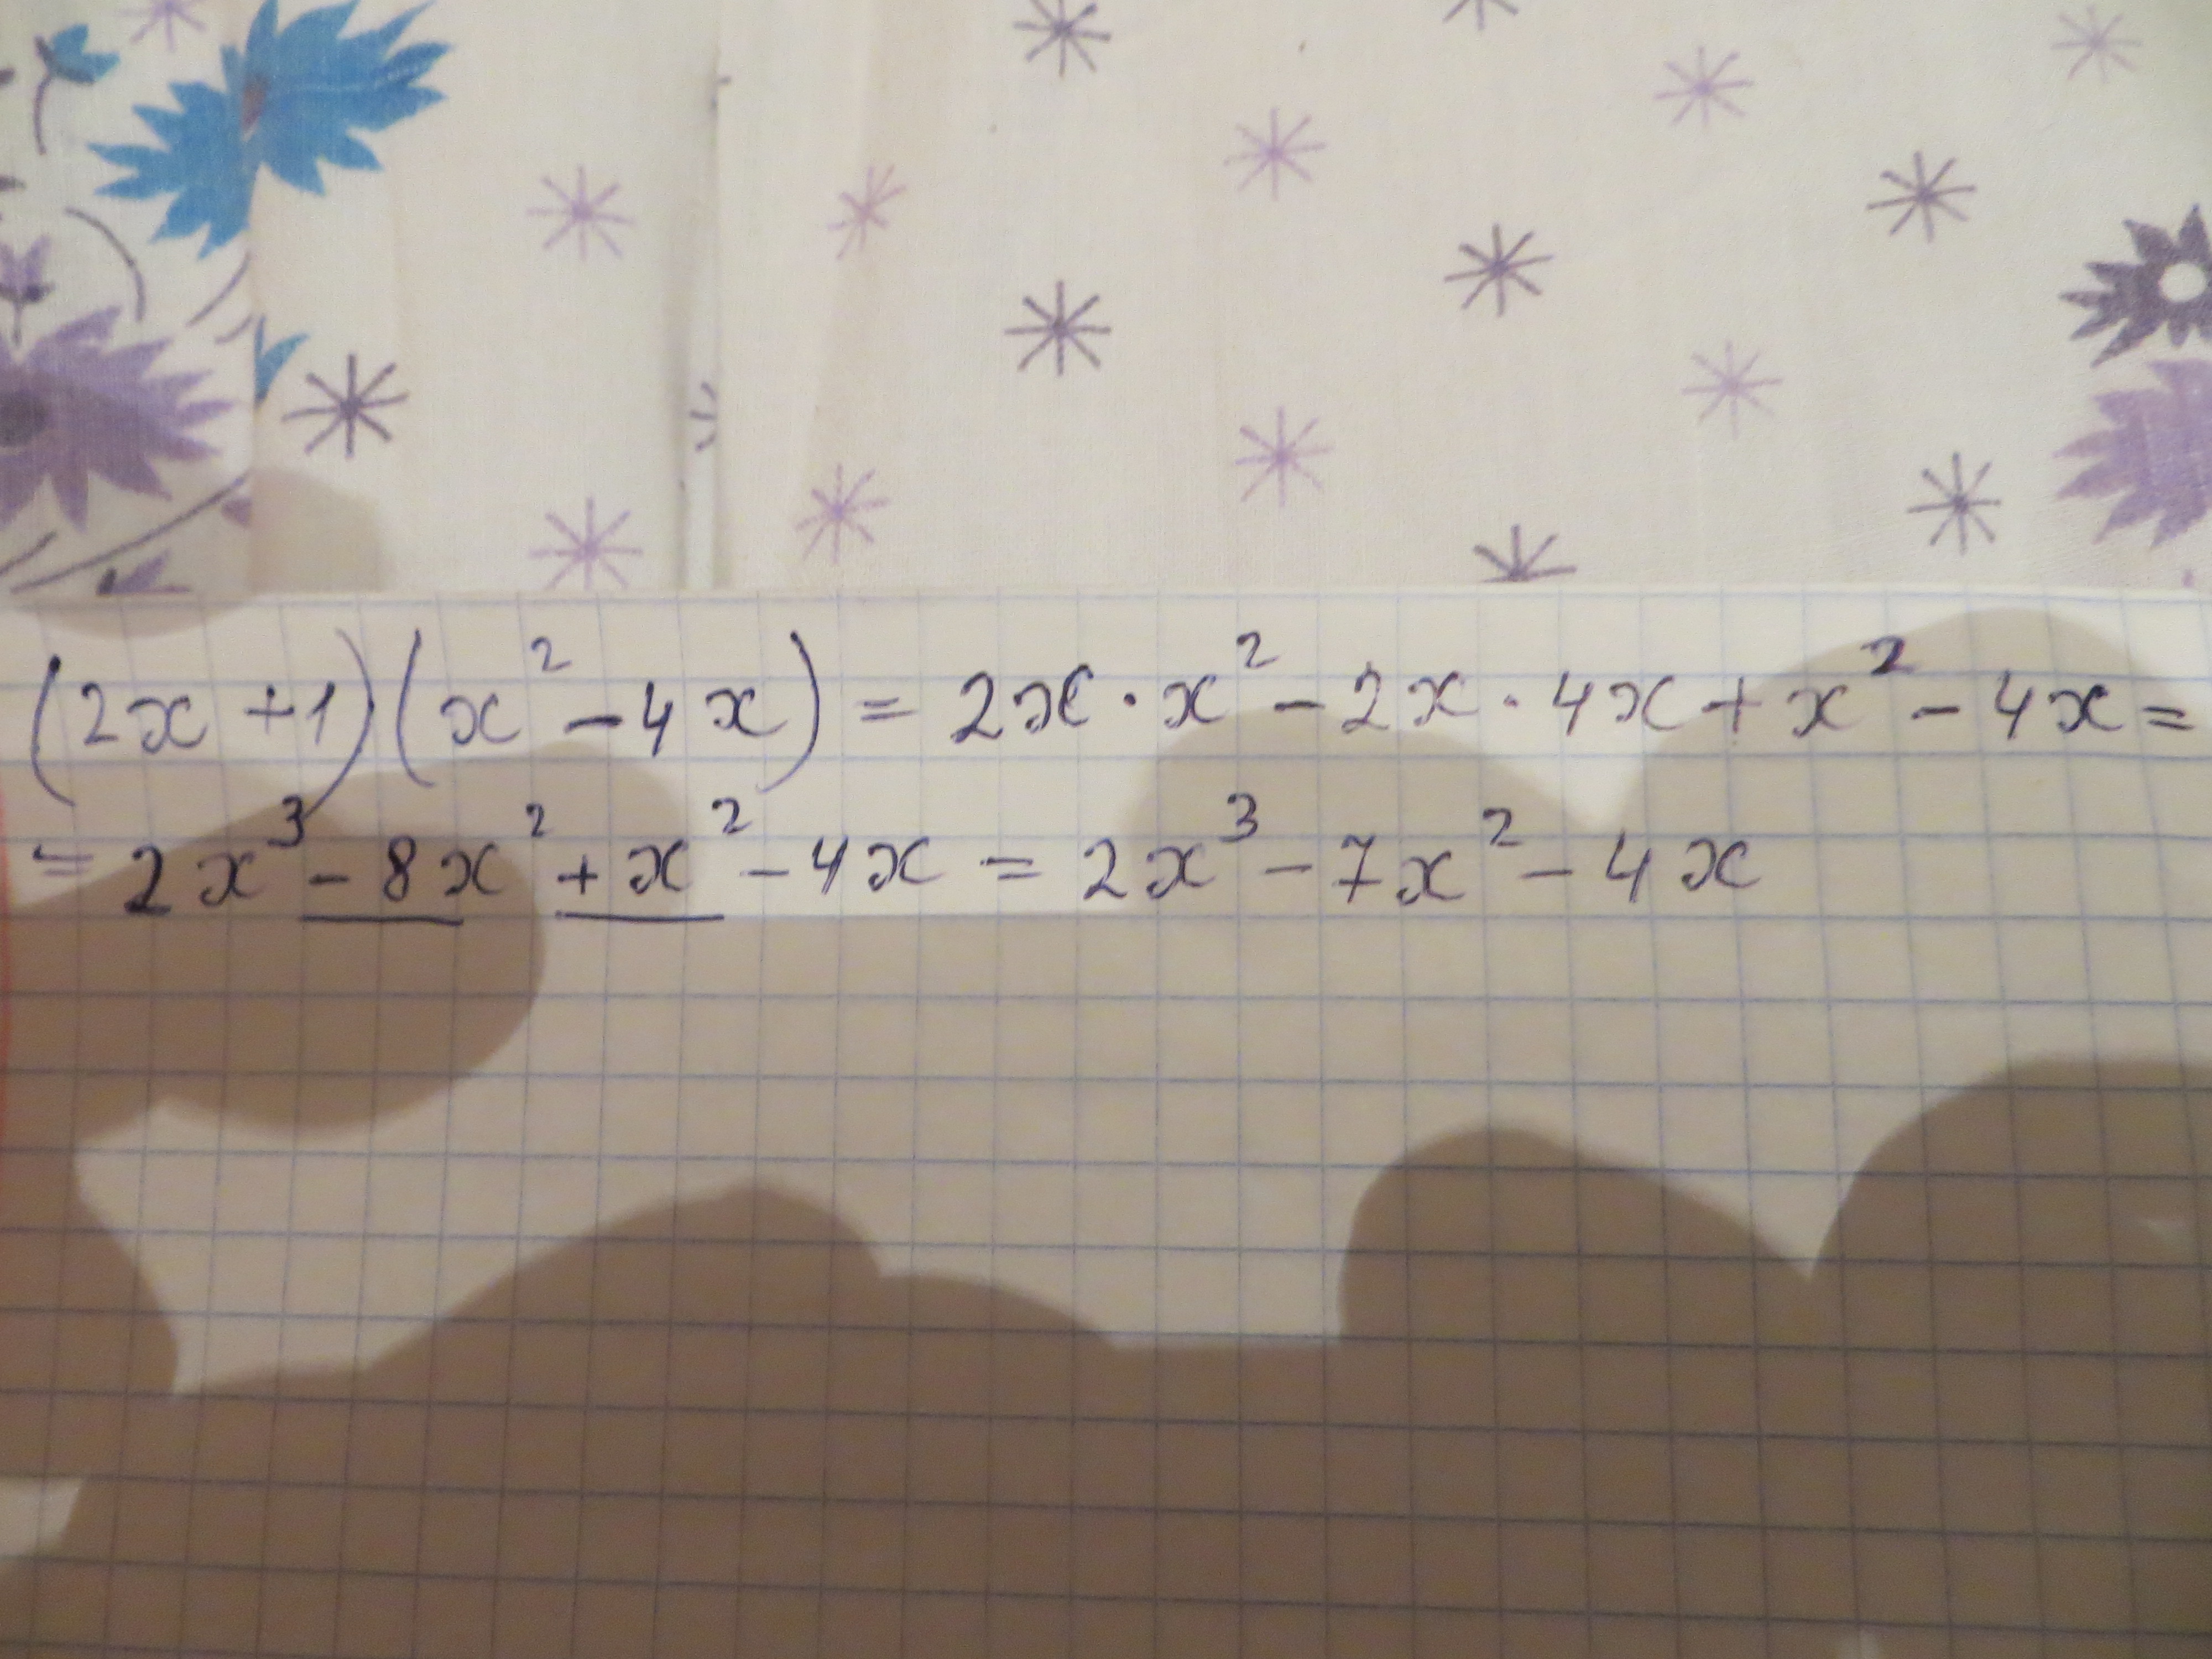 (2x+1)(x²-4x) = 2x·x²-2x·4x+x²-4x=
=2x³-8x²+x²-4x = 2x³-7x²-4x